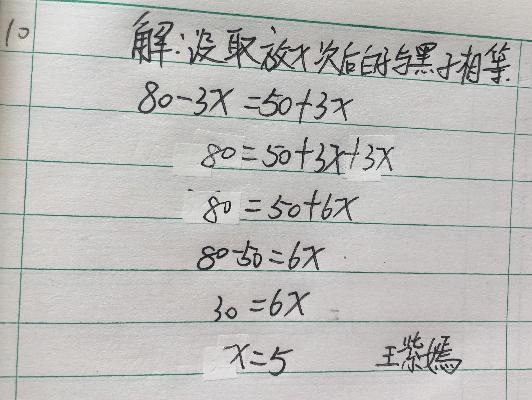 10 解:设取放x次后白子与黑子相等.
80-3x=50+3x
80=50+3x+3x
80=50+6x
80-50=6x
30=6x
x=5 王紫嫣